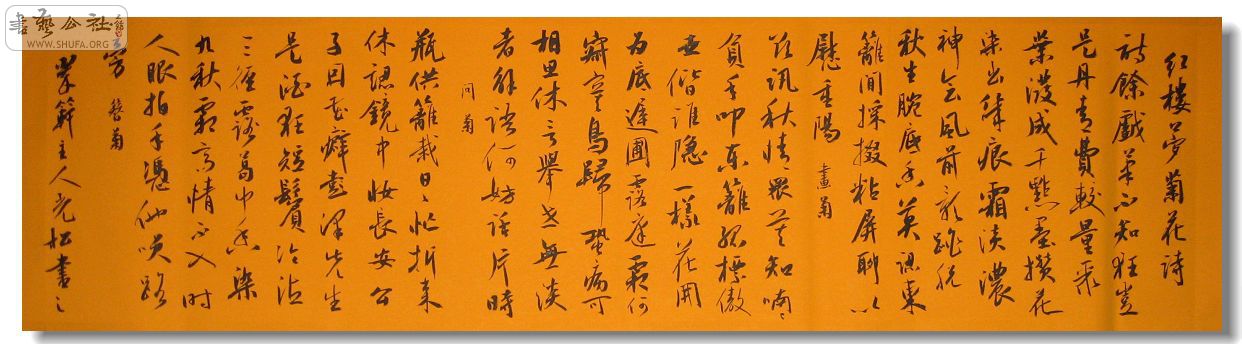 書藝公社
WWW.SHUFA.ORG
红樓梦菊花诗
詩餘戲筆不知狂豈
是丹青費較量聚
葉潑成千點墨攢花
染出幾痕霜淡濃
神会風前影跳脱
秋生腕底香莫認東
籬閒採掇粘屏聊以
慰重陽 畫菊
欲訊秋情眾莫知喃喃
負手叩東籬孤標傲
世偕誰隐一樣花開
为底遲圃露庭霜何
寂寞鳥歸蛩病可
相思休言舉世無談
者解語何妨話片時
問菊
瓶供籬栽日日忙折来
休認鏡中妝長安公
子因花癖彭澤先生
是酒狂短鬢冷沾
三徑露葛巾香染
九秋霜高情不入時
人眼拍手憑他笑路
旁 簪菊
主人光松書之